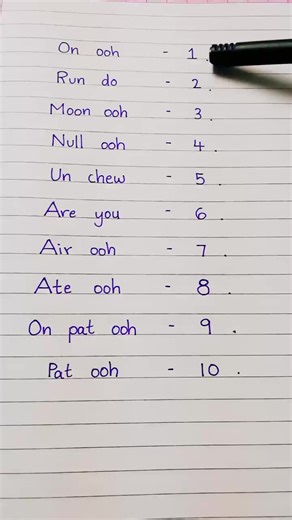 On ooh - 1.
Run do - 2.
Moon ooh - 3.
Null ooh - 4.
Un chew - 5.
Are you - 6.
Air ooh - 7.
Ate ooh - 8.
On pat ooh - 9.
Pat ooh - 10.